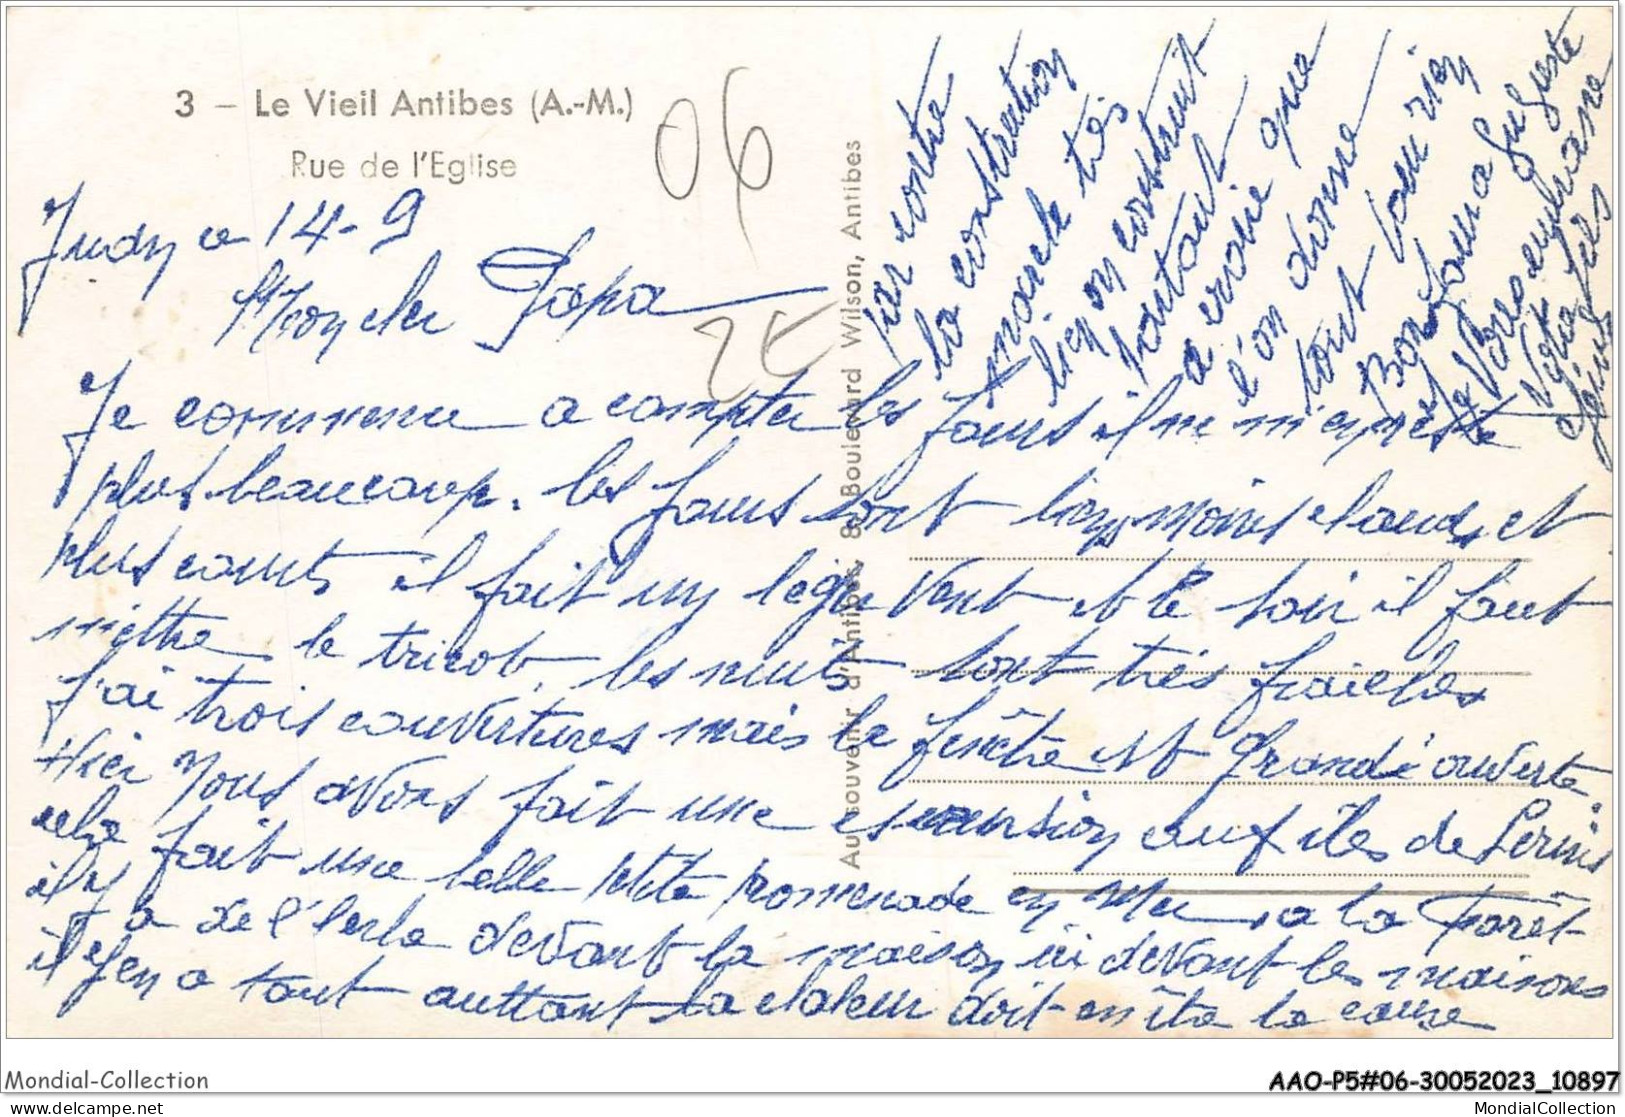 3 – Le Vieil Antibes (A.-M.)
Rue de l'Eglise
06
2E
ce 14-9
Mon cher Papa
Je commence a compter les jours il ne m'en reste
plus beaucoup. les jours sont bien moins chauds, et
plus courts il fait un léger vent et le soir il faut
mèttre le tricot, les nuits sont très fraiches
j'ai trois couvertures mais la fenêtre est grande ouverte
Hier nous avons fait une excursion aux îles de Lerins
cela fait une belle petite promenade en Mer, a la Forêt
il y a de l'herbe devant la maison ici devant les maisons
il y en a tout auttant la chaleur doit en être la cause
par contre
la construction
marche très
bien on construit
partout
a croire que
l'on donne
tout pour rien
Bonjour a Auguste
et Vous embrasse
Votre fils
Au souvenir d'Antibes, 8, Boulevard Wilson, Antibes
Mondial-Collection
AAO-P5#06-30052023_10897
delcampe.net
MondialCollection